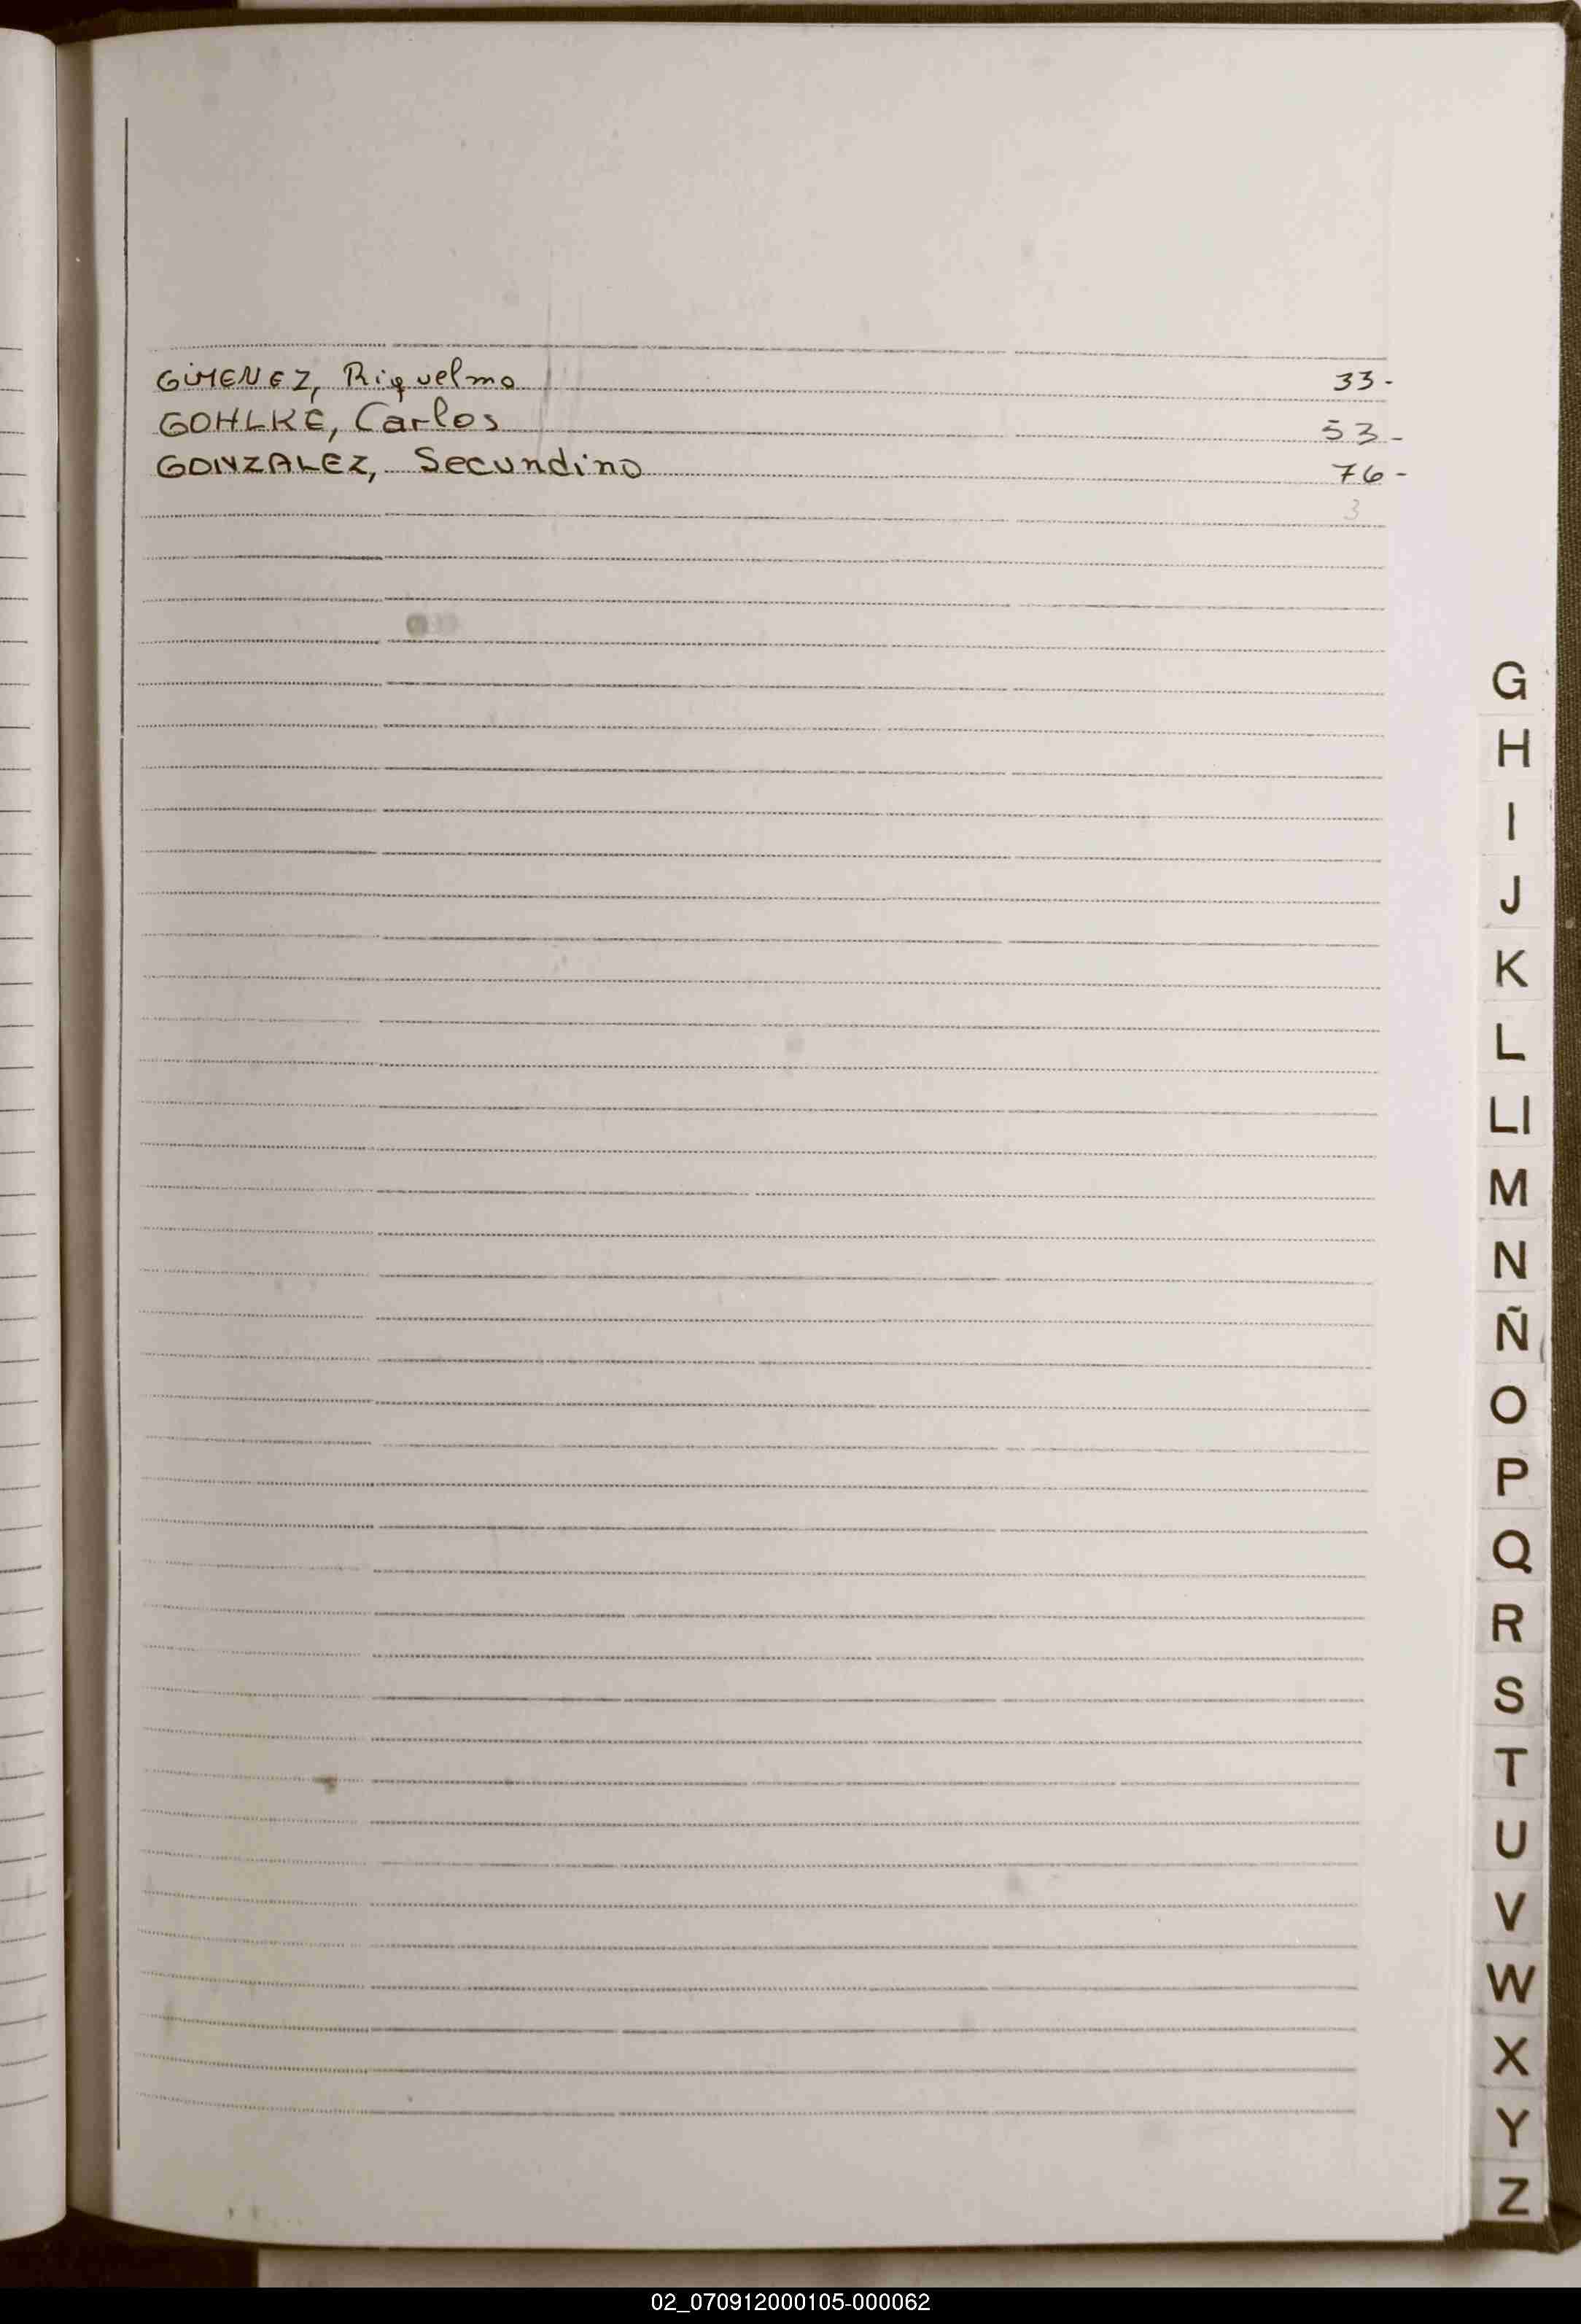 GIMENEZ, Riquelmo 33-
GOHLKE, Carlos 53-
GONZALEZ, Secundino 76-
3
G
H
I
J
K
L
Ll
M
N
Ñ
O
P
Q
R
S
T
U
V
W
X
Y
Z
02_070912000105-000062